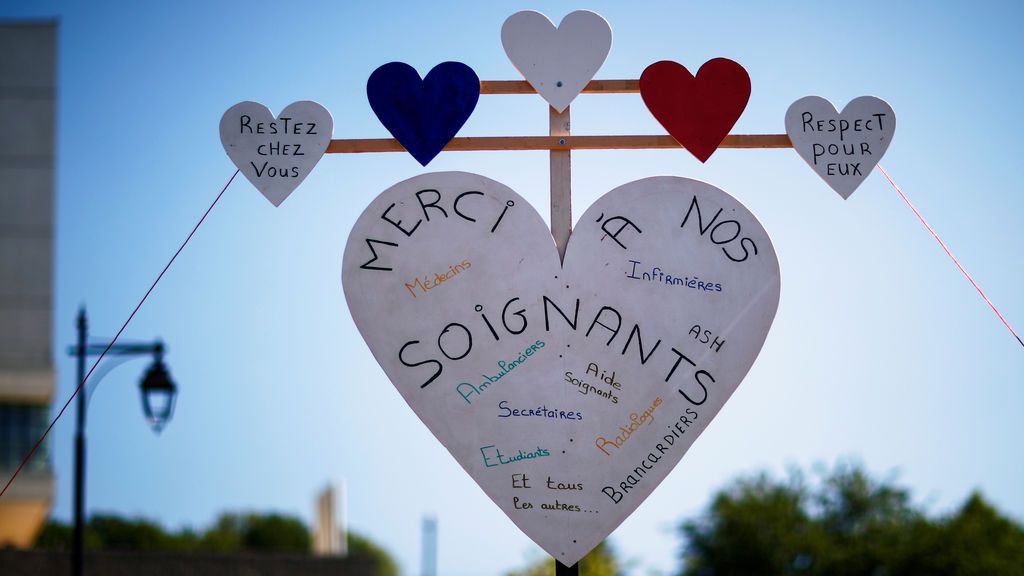 RESTEZ
CHEZ
VOUS
RESPECT
POUR
EUX
MERCI À NOS
SOIGNANTS
Médecins
Infirmières
ASH
Ambulanciers
Aide
Soignants
Secrétaires
Radiologues
Brancardiers
Etudiants
Et tous
les autres...